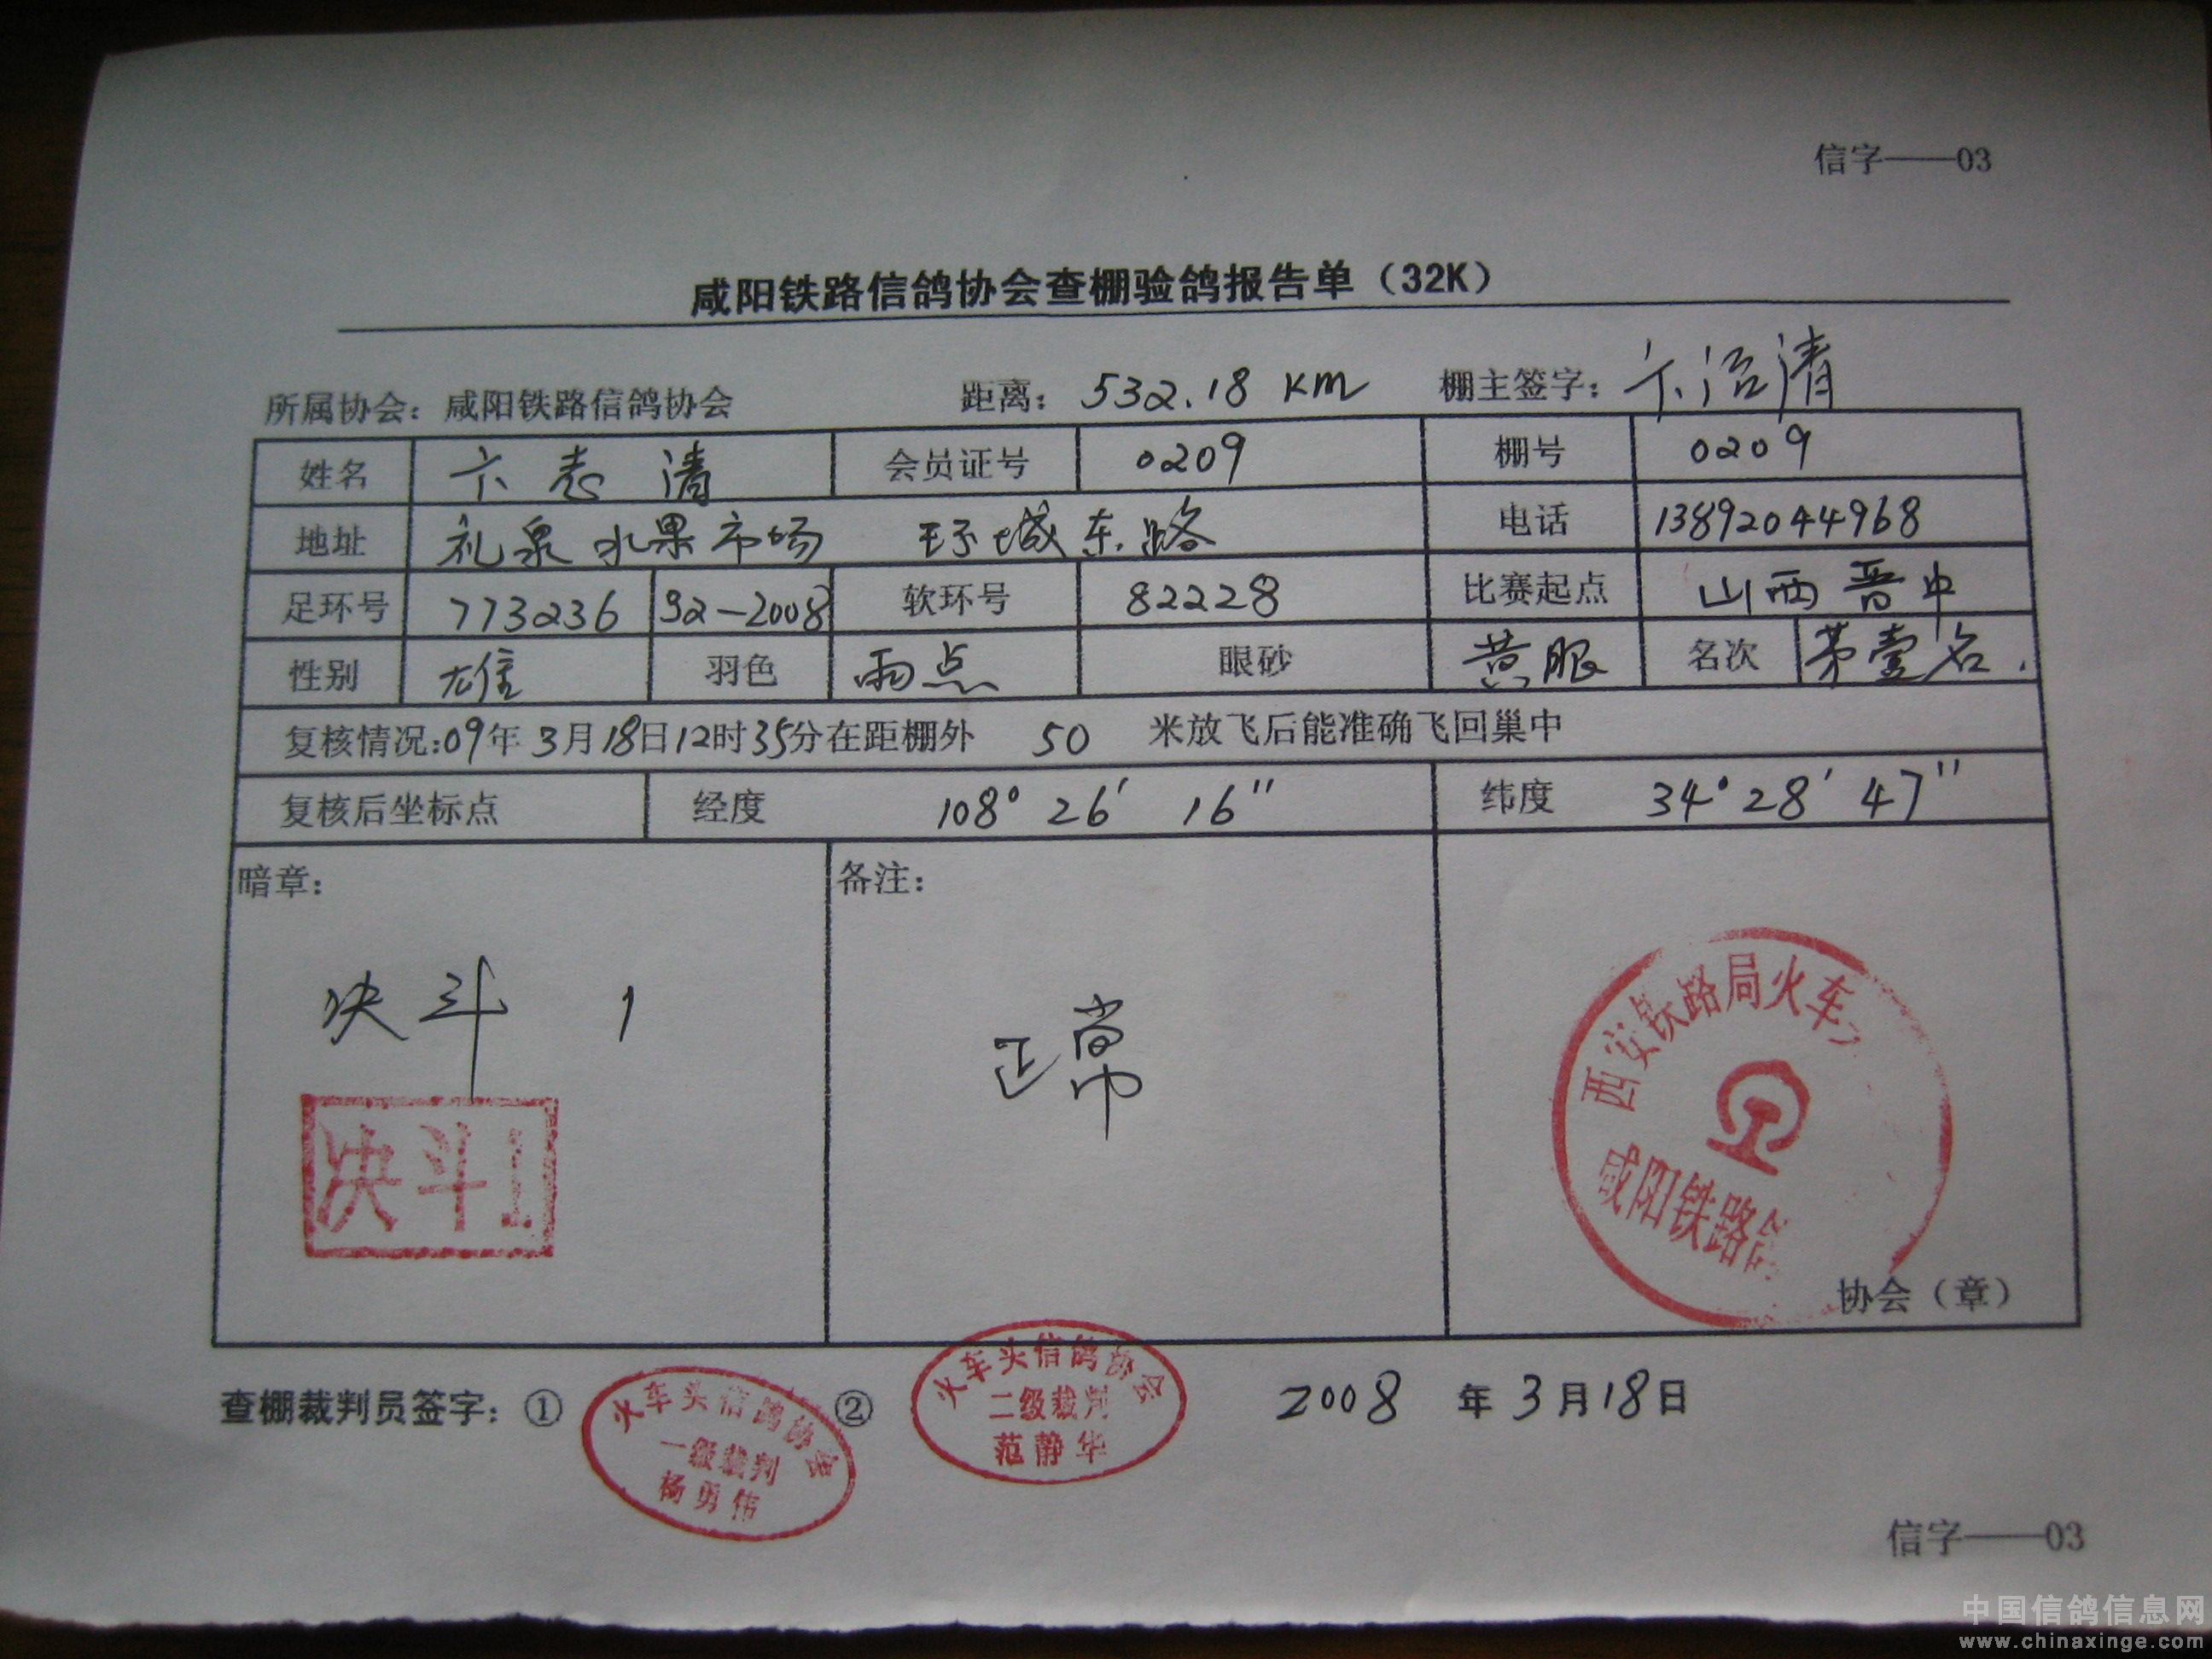 信字——03
咸阳铁路信鸽协会查棚验鸽报告单（32K）
所属协会：咸阳铁路信鸽协会 距离：532.18 KM 棚主签字：卞治清
姓名 卞志清 会员证号 0209 棚号 0209
地址 礼泉水果市场 环城东路 电话 13892044968
足环号 773236 92-2008 软环号 82228 比赛起点 山西晋中
性别 雄 羽色 雨点 眼砂 黄眼 名次 第壹名.
复核情况:09年3月18日12时35分在距棚外 50 米放飞后能准确飞回巢中
复核后坐标点 经度 108° 26′ 16″ 纬度 34° 28′ 47″
暗章： 备注：
决斗 1
正常
决斗1
西安铁路局火车
咸阳铁路
协会（章）
查棚裁判员签字：① ② 2008 年 3月18日
火车头信鸽协会
一级裁判
杨勇伟
火车头信鸽协会
二级裁判
范静华
信字——03
中国信鸽信息网
www.chinaxinge.com